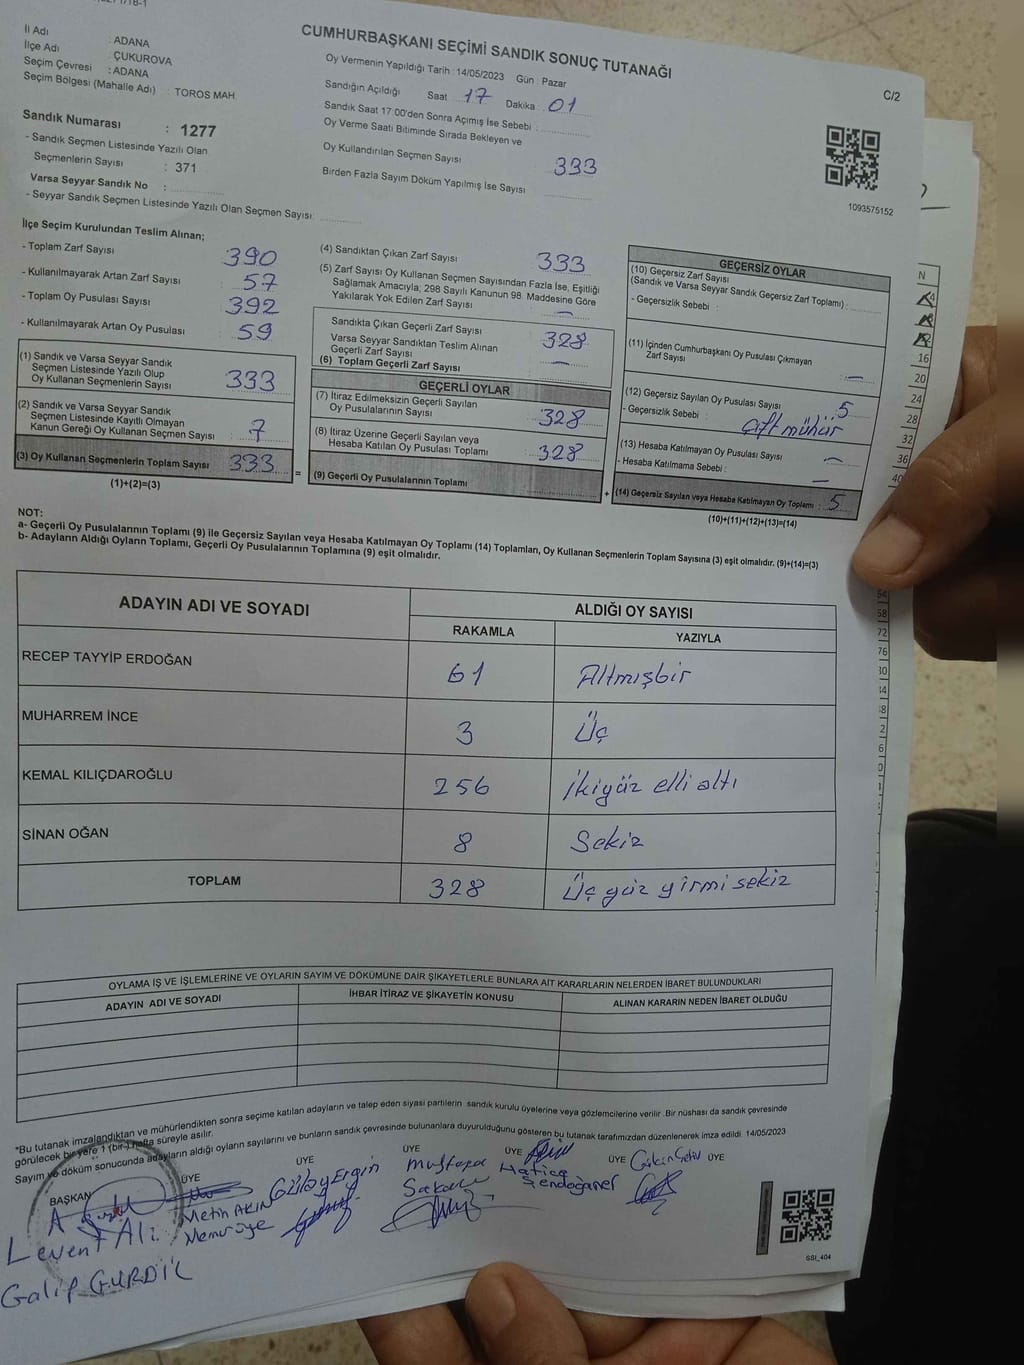 CUMHURBAŞKANI SEÇİMİ SANDIK SONUÇ TUTANAĞI
C/2
İl Adı : ADANA
İlçe Adı : ÇUKUROVA
Seçim Çevresi : ADANA
Seçim Bölgesi (Mahalle Adı) : TOROS MAH.
Sandık Numarası : 1277
- Sandık Seçmen Listesinde Yazılı Olan
Seçmenlerin Sayısı : 371
Varsa Seyyar Sandık No :
- Seyyar Sandık Seçmen Listesinde Yazılı Olan Seçmen Sayısı:
Oy Vermenin Yapıldığı Tarih : 14/05/2023 Gün : Pazar
Sandığın Açıldığı Saat 17 Dakika 01
Sandık Saat 17:00'den Sonra Açımış İse Sebebi :
Oy Verme Saati Bitiminde Sırada Bekleyen ve
Oy Kullandırılan Seçmen Sayısı 333
Birden Fazla Sayım Döküm Yapılmış İse Sayısı
1093575152
İlçe Seçim Kurulundan Teslim Alınan;
- Toplam Zarf Sayısı 390
- Kullanılmayarak Artan Zarf Sayısı : 57
- Toplam Oy Pusulası Sayısı 392
- Kullanılmayarak Artan Oy Pusulası : 59
(1) Sandık ve Varsa Seyyar Sandık
Seçmen Listesinde Yazılı Olup
Oy Kullanan Seçmenlerin Sayısı 333
(2) Sandık ve Varsa Seyyar Sandık
Seçmen Listesinde Kayıtlı Olmayan
Kanun Gereği Oy Kullanan Seçmen Sayısı : 7
(3) Oy Kullanan Seçmenlerin Toplam Sayısı 333
(1)+(2)=(3)
=
(4) Sandıktan Çıkan Zarf Sayısı : 333
(5) Zarf Sayısı Oy Kullanan Seçmen Sayısından Fazla İse, Eşitliği
Sağlamak Amacıyla, 298 Sayılı Kanunun 98. Maddesine Göre
Yakılarak Yok Edilen Zarf Sayısı : —
Sandıkta Çıkan Geçerli Zarf Sayısı : 328
Varsa Seyyar Sandıktan Teslim Alınan
Geçerli Zarf Sayısı : —
(6) Toplam Geçerli Zarf Sayısı
GEÇERLİ OYLAR
(7) İtiraz Edilmeksizin Geçerli Sayılan
Oy Pusulalarının Sayısı : 328
(8) İtiraz Üzerine Geçerli Sayılan veya
Hesaba Katılan Oy Pusulası Toplamı 328
(9) Geçerli Oy Pusulalarının Toplamı
+
GEÇERSİZ OYLAR
(10) Geçersiz Zarf Sayısı
(Sandık ve Varsa Seyyar Sandık Geçersiz Zarf Toplamı) :
- Geçersizlik Sebebi :
(11) İçinden Cumhurbaşkanı Oy Pusulası Çıkmayan
Zarf Sayısı : —
(12) Geçersiz Sayılan Oy Pusulası Sayısı : 5
- Geçersizlik Sebebi : çift mühür
(13) Hesaba Katılmayan Oy Pusulası Sayısı : —
- Hesaba Katılmama Sebebi : —
(14) Geçersiz Sayılan veya Hesaba Katılmayan Oy Toplamı : 5
(10)+(11)+(12)+(13)=(14)
NOT:
a- Geçerli Oy Pusulalarının Toplamı (9) ile Geçersiz Sayılan veya Hesaba Katılmayan Oy Toplamı (14) Toplamları, Oy Kullanan Seçmenlerin Toplam Sayısına (3) eşit olmalıdır. (9)+(14)=(3)
b- Adayların Aldığı Oyların Toplamı, Geçerli Oy Pusulalarının Toplamına (9) eşit olmalıdır.
ADAYIN ADI VE SOYADI ALDIĞI OY SAYISI
RAKAMLA YAZIYLA
RECEP TAYYİP ERDOĞAN 61 Altmışbir
MUHARREM İNCE 3 Üç
KEMAL KILIÇDAROĞLU 256 İkiyüz elli altı
SİNAN OĞAN 8 Sekiz
TOPLAM 328 Üç yüz yirmi sekiz
OYLAMA İŞ VE İŞLEMLERİNE VE OYLARIN SAYIM VE DÖKÜMÜNE DAİR ŞİKAYETLERLE BUNLARA AİT KARARLARIN NELERDEN İBARET BULUNDUKLARI
ADAYIN ADI VE SOYADI İHBAR İTİRAZ VE ŞİKAYETİN KONUSU ALINAN KARARIN NEDEN İBARET OLDUĞU
*Bu tutanak imzalandıktan ve mühürlendikten sonra seçime katılan adayların ve talep eden siyasi partilerin sandık kurulu üyelerine veya gözlemcilerine verilir .Bir nüshası da sandık çevresinde
görülecek bir yere 1 (bir) hafta süreyle asılır.
Sayım ve döküm sonucunda adayların aldığı oyların sayılarını ve bunların sandık çevresinde bulunanlara duyurulduğunu gösteren bu tutanak tarafımızdan düzenlenerek imza edildi. 14/05/2023
BAŞKAN ÜYE ÜYE ÜYE ÜYE ÜYE ÜYE
Levent Ali
Galip GÜRDİL
Metin AKIN
Memur üye
Gülay Ergin
Mustafa
Hatice
Şendoğaner
SSI_404
N
16
20
24
28
32
36
40